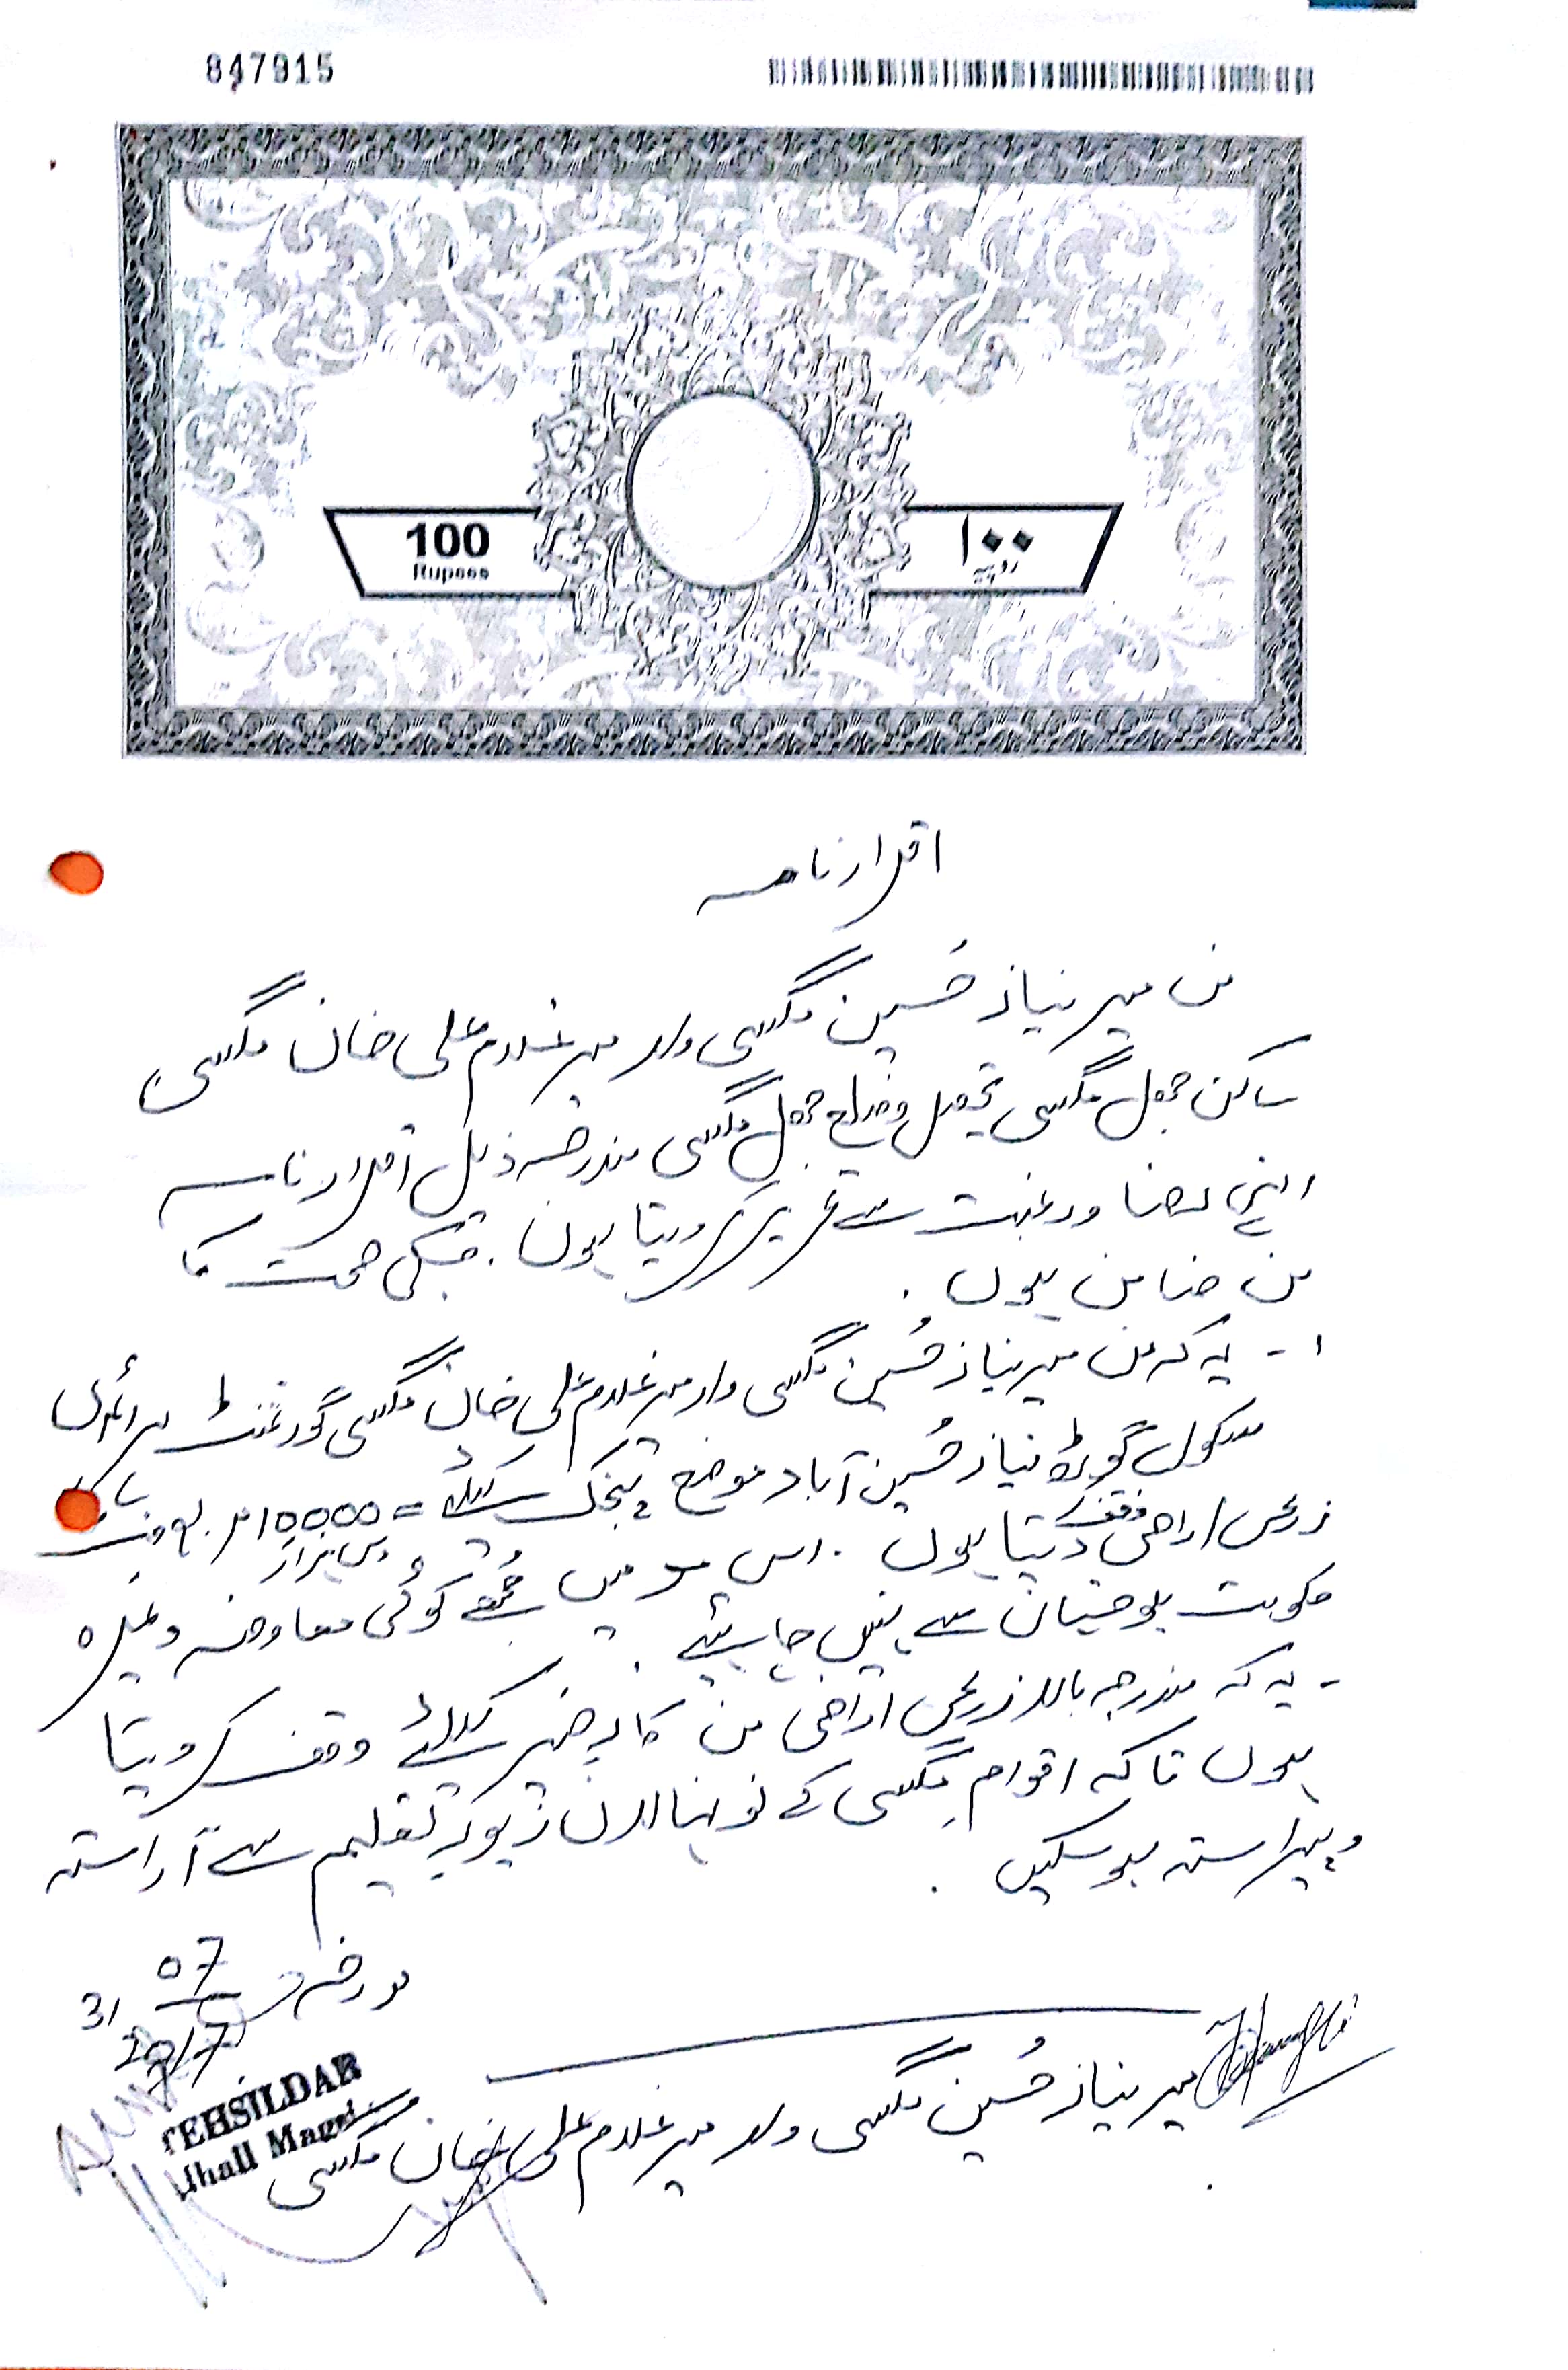 847915
100
Rupees
۱۰۰
روپیہ
اقرار نامہ
من میر نیاز حُسین مگسی ولد میر غلام علی خان مگسی
ساکن جھل مگسی تحصیل و ضلع جھل مگسی مندرجہ ذیل اقرار نامہ
اپنی رضا و رغبت سے تحریر کر دیتا ہوں . جسکی صحت کا
من ضامن ہوں .
۱- یہ کہ من میر نیاز حُسین مگسی ولد میر غلام علی خان مگسی گورنمنٹ پرائمری
سکول گوٹھ نیاز حُسین آباد موضع کیلئے = 10000 مربع فٹ
دس ہزار
زرعی اراضی وقف دیتا ہوں . اس مد میں مُجھے کوئی معاوضہ وغیرہ
حکومت بلوچستان سے نہیں چاہیئے .
- یہ کہ مندرجہ بالا زرعی اراضی من کارِ خیر کیلئے وقف کر دیتا
ہوں تاکہ اقوام مگسی کے نونہالان زیورِ تعلیم سے آراستہ
و پیراستہ ہو سکیں .
مورخہ 31 07 2017
میر نیاز حُسین مگسی ولد میر غلام علی خان مگسی
TEHSILDAR
Jhall Magsi